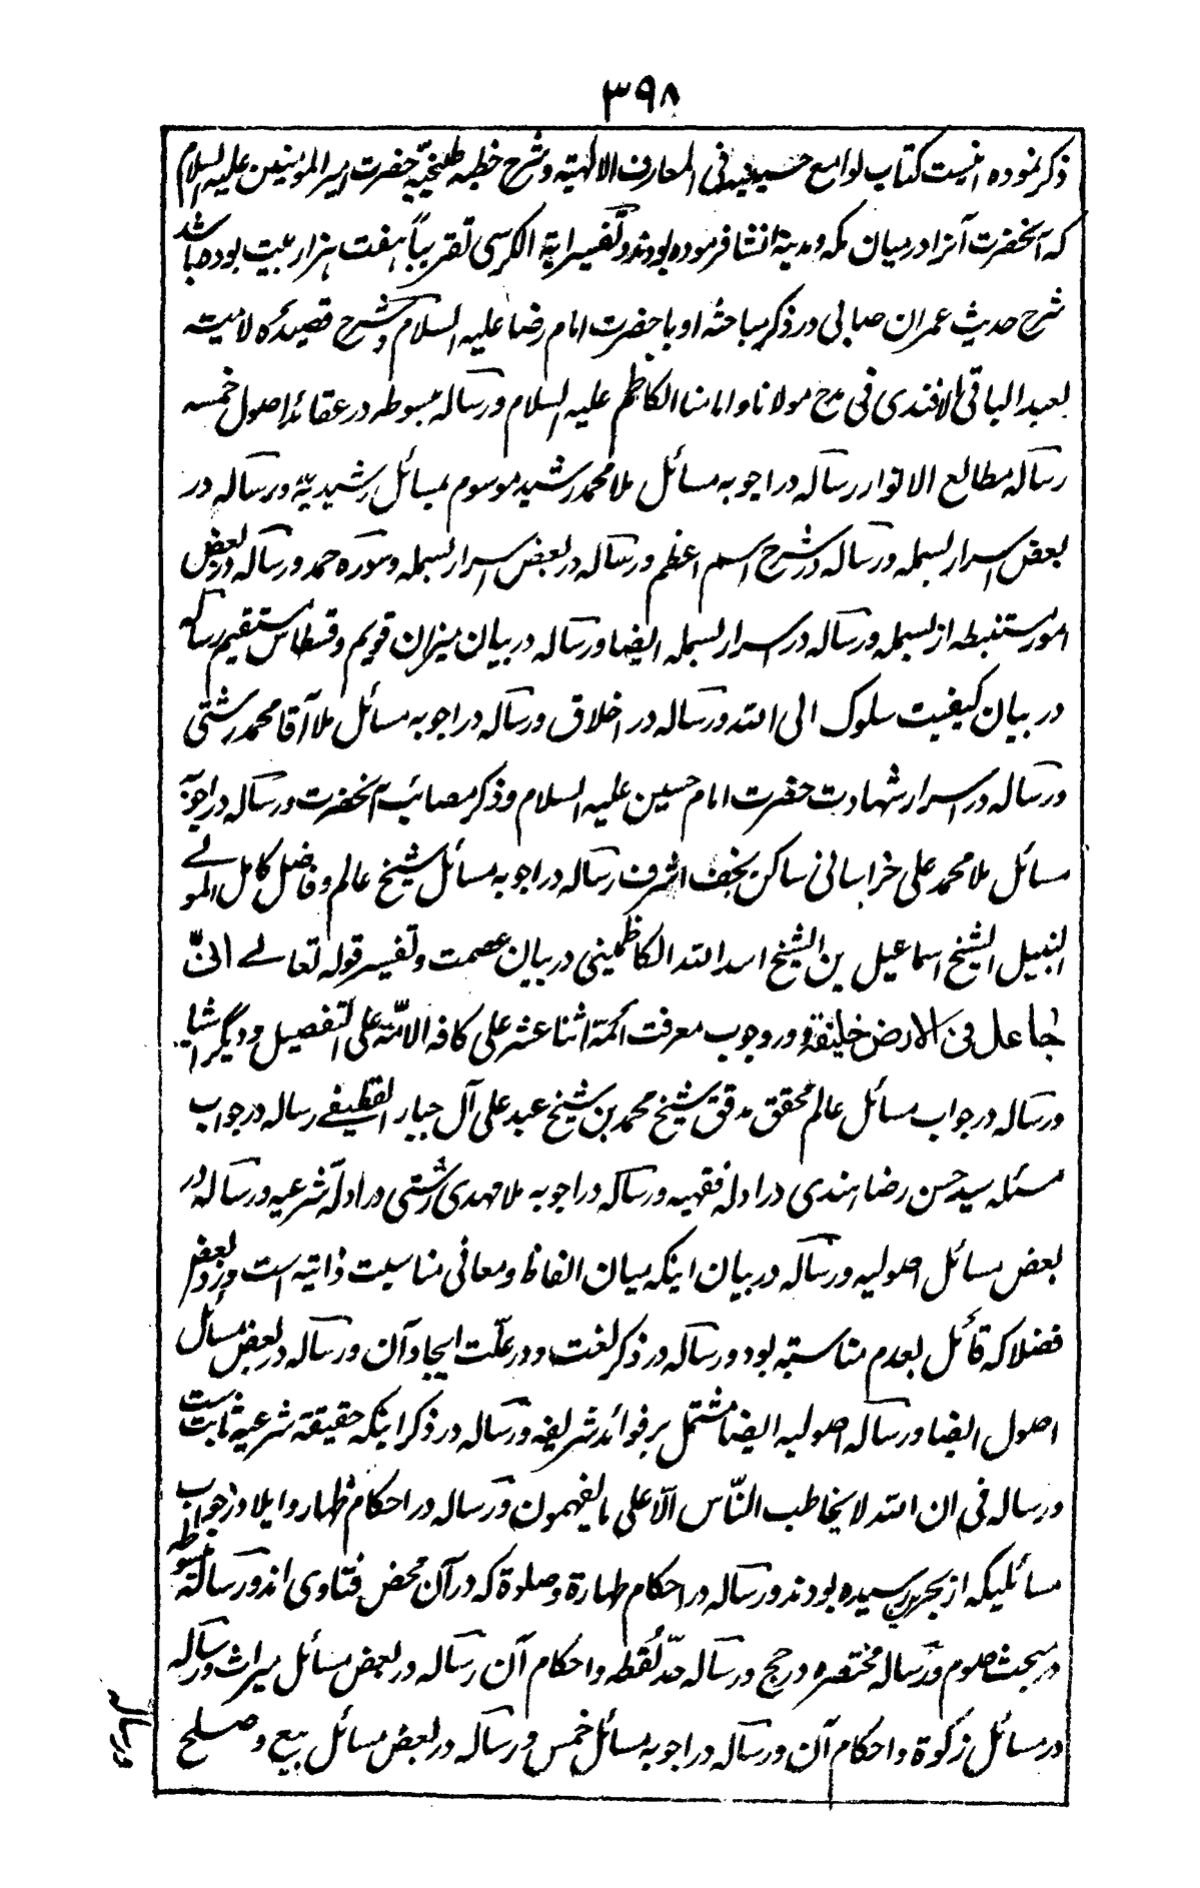 ۳۹۸
ذکر نموده انیست کتاب لوامع حسینیه فی المعارف الالهیته و شرح خطبه طتنجیّه حضرت امیر المومنین علیه السلام
که آنحضرت آنرا در میان مکه و مدینه انشا فرموده بودند و تفسیر ایة الکرسی تقریباً هفت هزار بیت بوده باشد
شرح حدیث عمران صابی در ذکر مباحثه او با حضرت امام رضا علیه السلام و شرح قصیدهٔ لامیته
لعبد الباقی الافندی فی مدح مولانا و امامنا الکاظم علیه السلام و رساله مبسوطه در عقائد اصول خمسه
رساله مطالع الانوار رساله در اجوبه مسائل ملا محمد رشید موسوم بمسائل رشیدیّه و رساله در
بعض اسرار بسمله و رساله در شرح اسم اعظم و رساله در بعض اسرار بسمله و سوره حمد و رساله در بعض
امور مستنبطه از بسمله و رساله در اسرار بسمله ایضا و رساله در بیان میزان قویم و قسطاس مستقیم رساله
در بیان کیفیت سلوک الی الله و رساله در اخلاق و رساله در اجوبه مسائل ملا آقا محمد رشتی
و رساله در اسرار شهادت حضرت امام حسین علیه السلام و ذکر مصائب آنحضرت و رساله در اجوبه
مسائل ملا محمد علی خراسانی ساکن نجف اشرف رساله در اجوبه مسائل شیخ عالم و فاضل کامل المولے
النبیل الشیخ اسماعیل بن الشیخ اسد الله الکاظمینی در بیان عصمت و تفسیر قوله تعالے انیّ
جاعل فی الارض خلیفة و در وجوب معرفت ائمة اثنا عشر علی کافه الامّة علی التفصیل و دیگر اشیا
و رساله در جواب مسائل عالم محقق مدقق شیخ محمد بن شیخ عبد علی آل جبار القطیفے رساله در جواب
مسئله سید حسن رضا هندی در ادله فقهیه و رساله در اجوبه ملا مهدی رشتی در ادلّه شرعیه و رساله در
بعض مسائل اصولیه و رساله در بیان اینکه میان الفاظ و معانی مناسبت ذاتیه است و رد بعض
فضلا که قائل بعدم مناسبته بود و رساله در ذکر لغت و در علّت ایجاد آن و رساله در بعض مسائل
اصول ایضا و رساله اصولیه ایضا مشتمل بر فوائد شریفه و رساله در ذکر اینکه حقیقة شرعیه ثابت است
و رساله فی ان الله لا یخاطب النّاس الّا علی ما یفهمون و رساله در احکام ظهار و ایلا و در جواب
مسائلیکه از بحرین رسیده بودند و رساله در احکام طهارة و صلوة که در آن محض فتاوی اند و رسالة مبسوطه
در مبحث صوم و رساله مختصره در حج و رساله حدّ لُقطه و احکام آن رساله در بعض مسائل میراث و رساله
در مسائل زکوة و احکام آن و رساله در اجوبه مسائل خمس و رساله در بعض مسائل بیع و صلح
و رساله